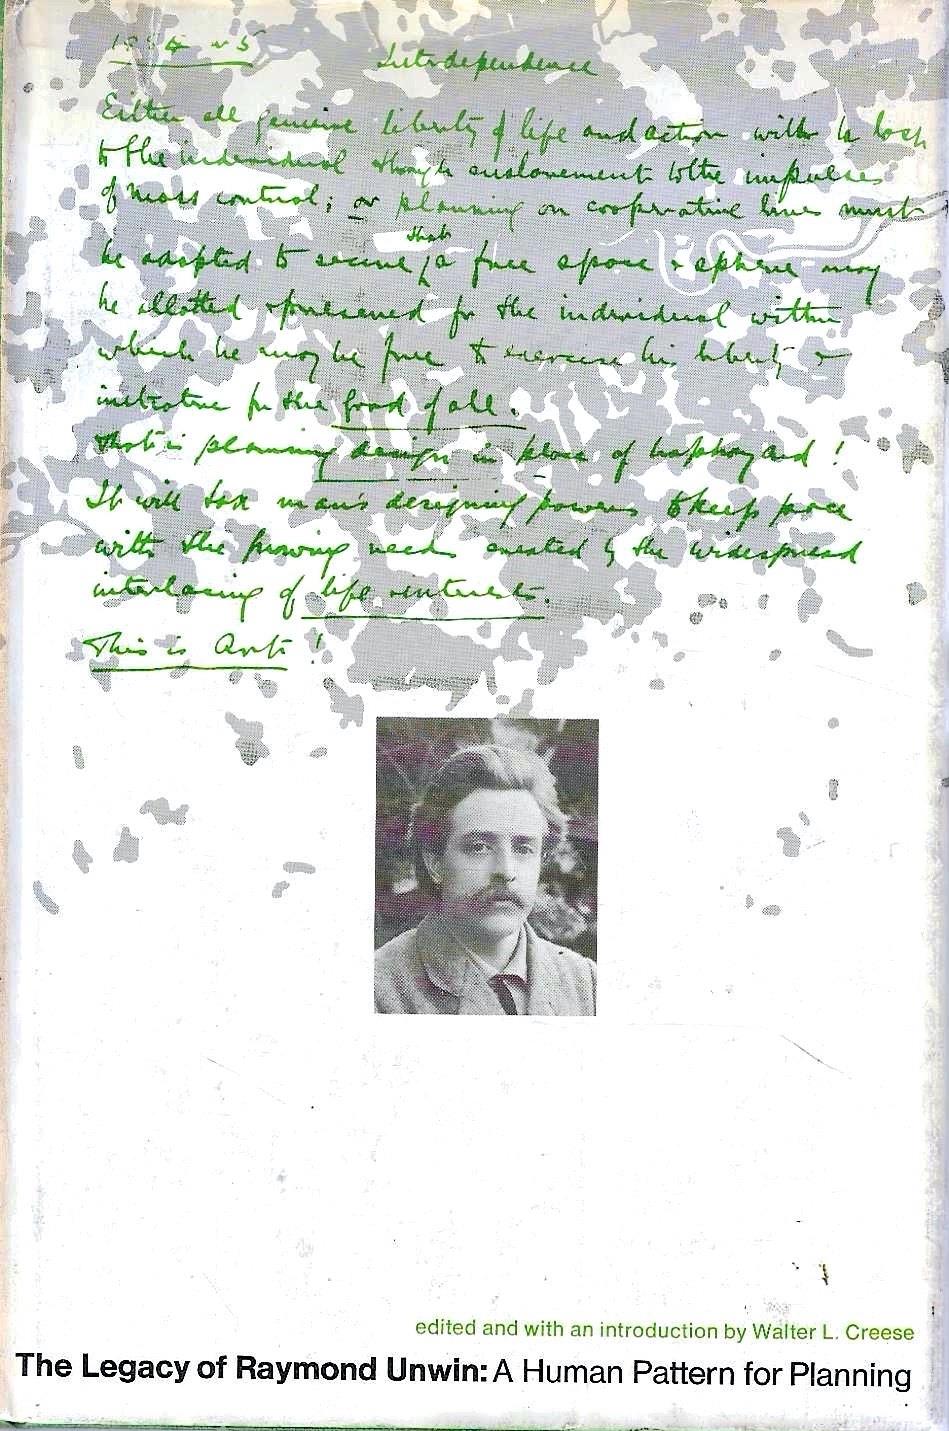 Interdependence
Either all genuine liberty of life and action will be lost
to the individual through enslavement to the impulses
of mass control; or planning on cooperative lines must
be adapted to secure that a free space & sphere may
be allotted & preserved for the individual within
which he may be free to exercise his liberty &
initiative for the good of all.
That is planning design in place of haphazard!
It will tax man's designing powers to keep pace
with the growing needs created by the widespread
interlacing of life & interests.
This is Art!
edited and with an introduction by Walter L. Creese
The Legacy of Raymond Unwin: A Human Pattern for Planning